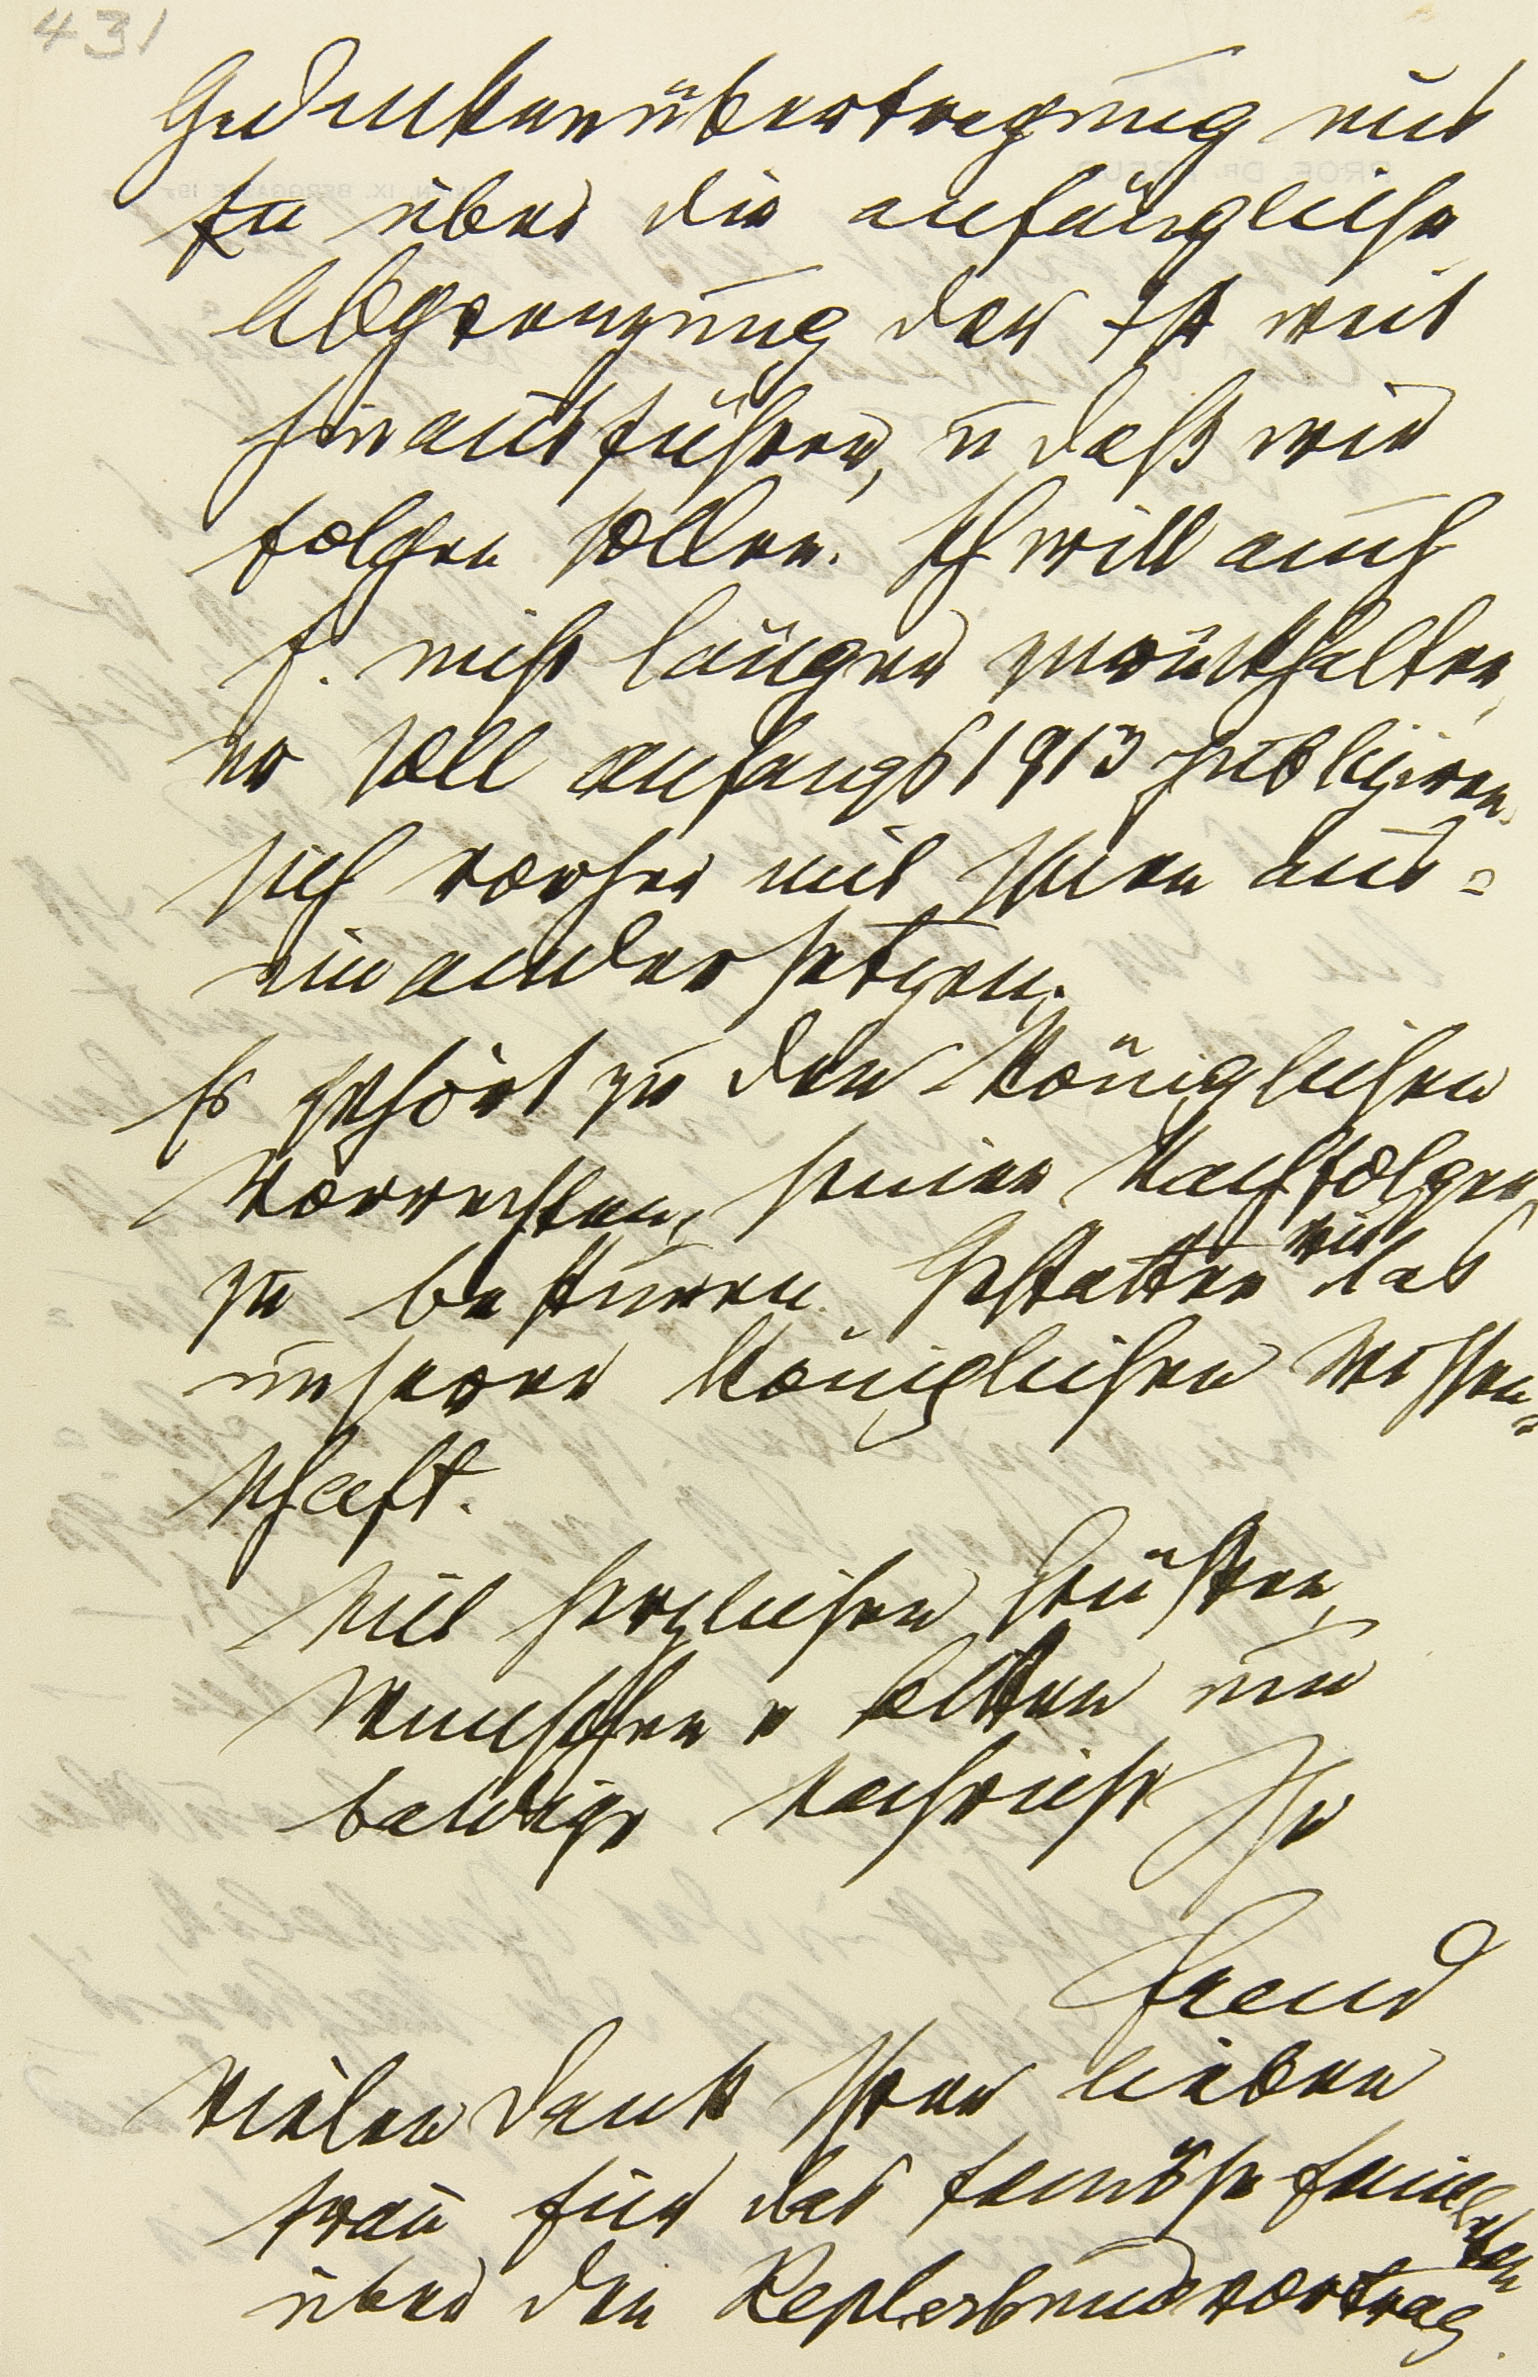 431
Gedankenübertragung uns
zu über die anfängliche
Abgrenzung der ΨA weit
hinausführen, u daß wir
folgen sollen. Ich will auch
F. nicht länger zurückhalten,
er soll anfangs 1913 publiziren,
sich vorher mit Ihnen aus-
einandersetzen.
Es gehört zu den königlichen
Vorrechten, seine Nachfolger
zu besturen. Gestatten wir das
unserer königlichen Wissen-
schaft.
Mit herzlichen Grüßen,
Wünschen u Bitten um
baldige Nachricht Ihr
Freud
Vielen Dank Ihrer lieben
Frau für das famose Feuilleton
über den Keplerbundvortrag.